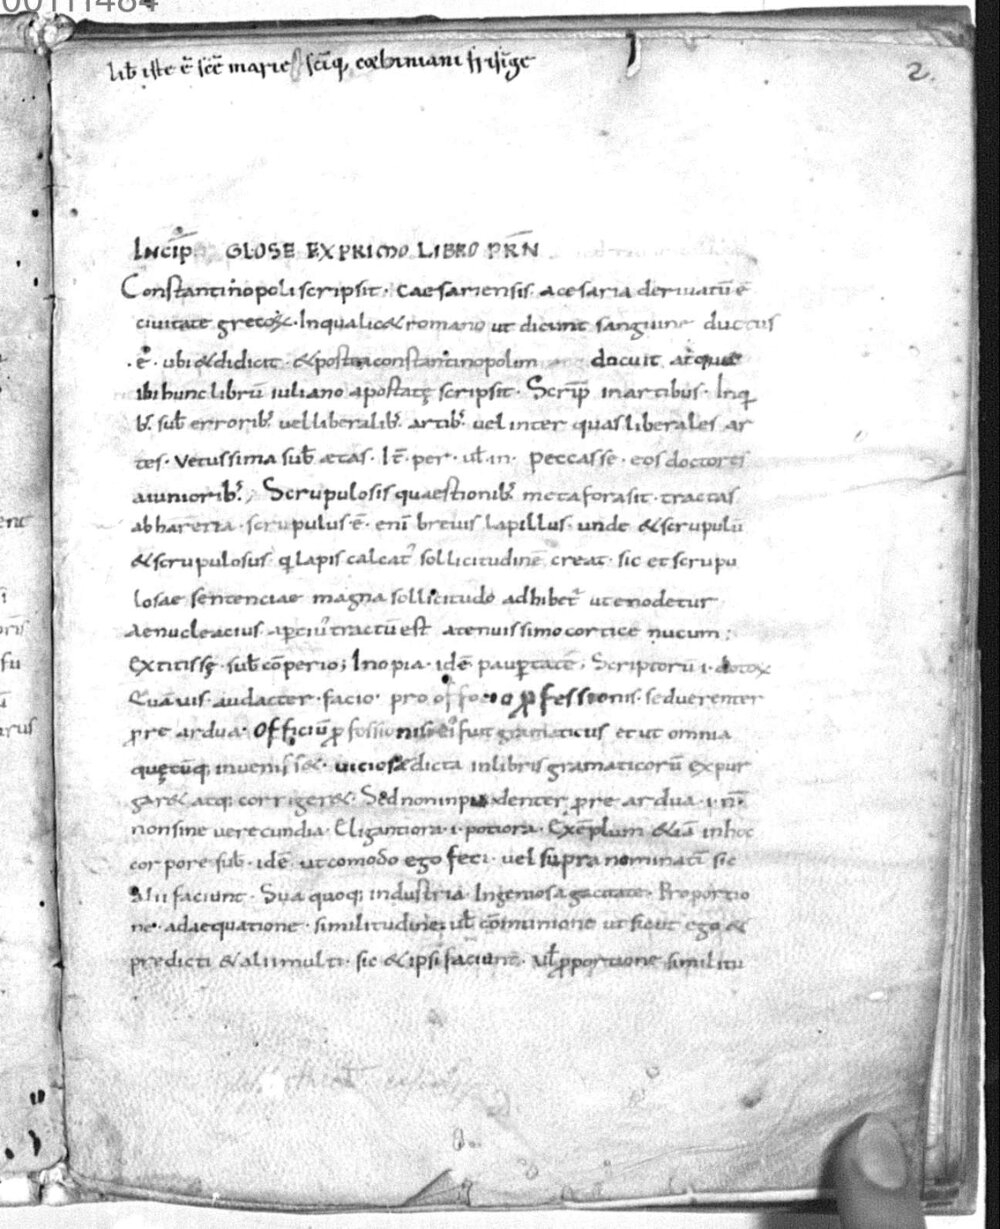 00111484
lib iste ē scē marie sciq, corbiniani frisīge
2.
INCIP̄ GLOSE EX PRIMO LIBRO PRN̄
Constantinopoli scripsit. Caesariensis. a cesaria deriuatū ē
ciuitate . In qua lic& romano ut dicunt sanguine ductus
.ē. ubi & didicit. & postea constantinopolim docuit atque
ibi hunc librū iuliano apostatę scripsit. Scrip̄ in artibus. Inq
b; sub̄ errorib; uel liberalib; artib; uel inter quas liberales ar
tes. Vetussima sub̄ aetas. It̄ per. ul̄ in. peccasse. eos doctores
a iuniorib; Scrupulosis quaestionib; metafora sit. tractas
ab harena. scrupulus ē. enī breuis lapillus. unde & scrupulū
& scrupulosus. q lapis calcat' sollicitudinē creat. sic et scrupu
losae sentenciae magna sollicitudo adhibet' ut enodetur
aenucleacius apciū tractū est a tenuissimo cortice nucum;
extitissę. sub̄ cōperio; Inopia. idē paupertate. Scriptorū .i.
Quāuis. audacter. facio. pro officio professionis. se duerenter
pre ardua. Officiū p fossionis ei' fuit gramaticus et ut omnia
quęcūq, inuenis& . uiciosae dicta in libris gramaticorū expur
gar& atq; corriger&. Sed non inpudenter pre ardua .i. n̄.
non sine uerecundia. Eligantiora .i. potiora. Exēplum &iā in hoc
corpore sub̄. idē ut comodo ego feci. uel supra nominati sic
Alii faciunt. Sua quoq; industria. Ingeniosa gacitate. Proportio
ne. adaequatione. similitudine; ul̄ cōmunione ut sicut ego &
predicti & alii multi. sic & ipsi faciunt. ul̄ pportione similitu